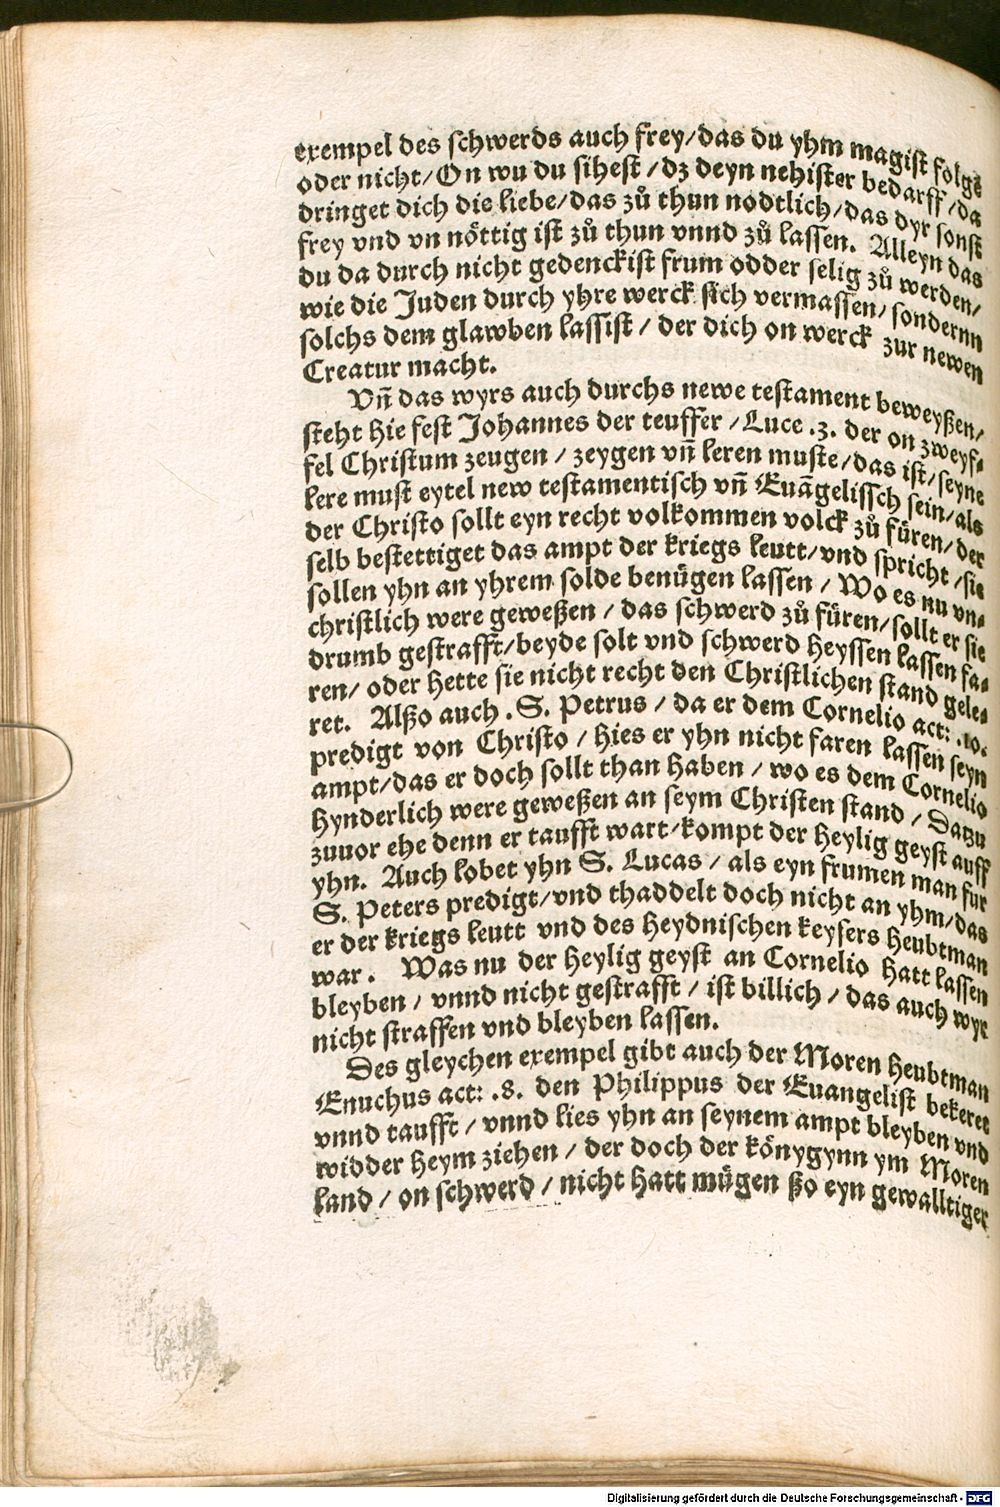 exempel des schwerds auch frey/das du yhm magist folge
oder nicht/On wu du sihest/dz deyn nehister bedarff/da
dringet dich die liebe/das zů thun nodtlich/das dyr sonst
frey vnd vn nöttig ist zů thun vnnd zů lassen. Alleyn das
du da durch nicht gedenckist frum odder selig zů werden/
wie die Juden durch yhre werck sich vermassen/sondernn
solchs dem glawben lassist/der dich on werck zur newen
Creatur macht.
Vn̄ das wyrs auch durchs newe testament beweyßen/
steht hie fest Johannes der teuffer/Luce .3. der on zweyf⸗
fel Christum zeugen/zeygen vn̄ leren muste/das ist/seyne
lere must eytel new testamentisch vn̄ Euāgelissch sein/als
der Christo sollt eyn recht volkommen volck zů füren/der
selb bestettiget das ampt der kriegs leutt/vnd spricht/sie
sollen yhn an yhrem solde benügen lassen/Wo es nu vn⸗
christlich were geweßen/das schwerd zů füren/sollt er sie
drumb gestrafft/beyde solt vnd schwerd heyssen lassen fa⸗
ren/oder hette sie nicht recht den Christlichen stand gele⸗
ret. Alßo auch .S. Petrus/da er dem Cornelio act: .10.
predigt von Christo/hies er yhn nicht faren lassen seyn
ampt/das er doch sollt than haben/wo es dem Cornelio
hynderlich were geweßen an seym Christen stand/Datzu
zuuor ehe denn er taufft wart/kompt der heylig geyst auff
yhn. Auch lobet yhn S. Lucas/als eyn frumen man fur
S. Peters predigt/vnd thaddelt doch nicht an yhm/das
er der kriegs leutt vnd des heydnischen keysers heubtman
war. Was nu der heylig geyst an Cornelio hatt lassen
bleyben/vnnd nicht gestrafft/ist billich/das auch wyr
nicht straffen vnd bleyben lassen.
Des gleychen exempel gibt auch der Moren heubtman
Enuchus act: .8. den Philippus der Euangelist bekeret
vnnd taufft/vnnd lies yhn an seynem ampt bleyben vnd
widder heym ziehen/der doch der königynn ym Moren
land/on schwerd/nicht hatt mügen ßo eyn gewalltiger
Digitalisierung gefördert durch die Deutsche Forschungsgemeinschaft - DFG